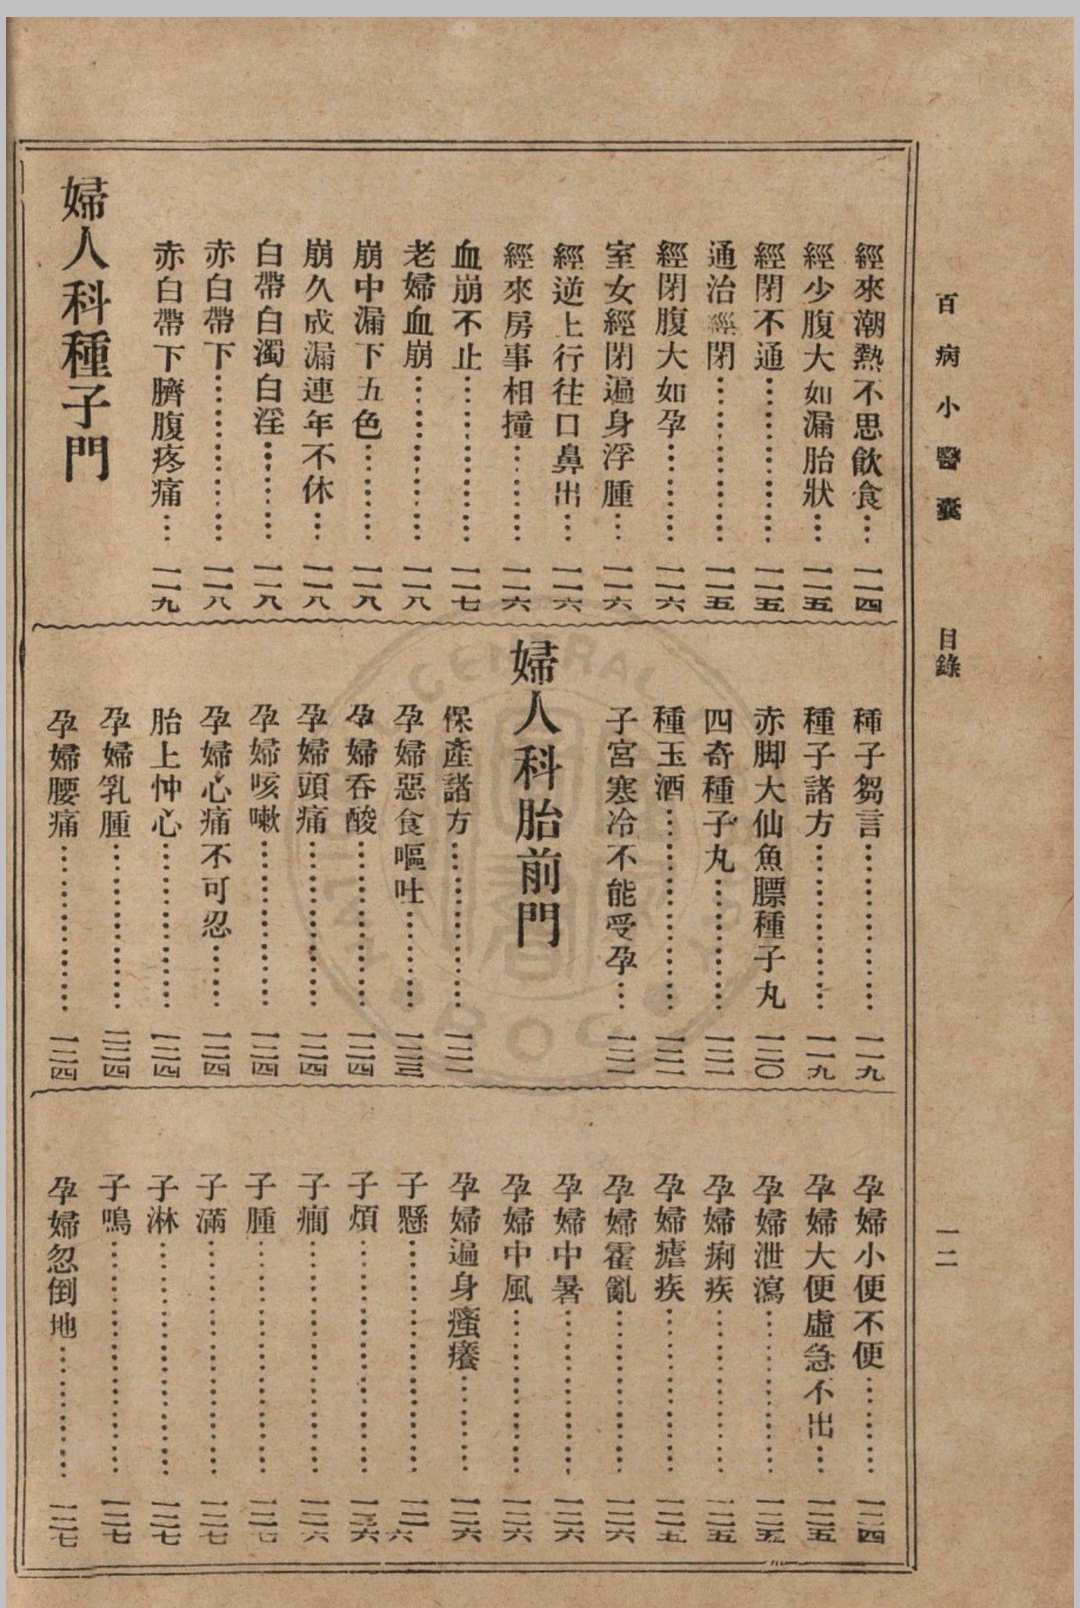 百病小醫囊　目錄　一二
經來潮熱不思飲食…一一四
經少腹大如漏胎狀…一一五
經閉不通………一一五
通治經閉………一一五
經閉腹大如孕……一一六
室女經閉遍身浮腫…一一六
經逆上行往口鼻出…一一六
經來房事相撞……一一六
血崩不止………一一七
老婦血崩………一一八
崩中漏下五色……一一八
崩久成漏連年不休…一一八
白帶白濁白淫……一一八
赤白帶下………一一八
赤白帶下臍腹疼痛…一一九
婦人科種子門
種子芻言………一一九
種子諸方………一一九
赤脚大仙魚膘種子丸　一二〇
四奇種子丸……一二一
種玉酒………一二一
子宮寒冷不能受孕…一二一
婦人科胎前門
保產諸方………一二一
孕婦惡食嘔吐……一二三
孕婦吞酸………一二四
孕婦頭痛………一二四
孕婦咳嗽………一二四
孕婦心痛不可忍……一二四
胎上忡心………一二四
孕婦乳腫………一二四
孕婦腰痛………一二四
孕婦小便不便……一二四
孕婦大便虛急不出…一二五
孕婦泄瀉………一二五
孕婦痢疾………一二五
孕婦瘧疾………一二五
孕婦霍亂………一二六
孕婦中暑………一二六
孕婦中風………一二六
孕婦遍身瘙癢……一二六
子懸…………一二六
子煩…………一二六
子癎…………一二六
子腫…………一二七
子滿…………一二七
子淋…………一二七
子鳴…………一二七
孕婦忽倒地……一二七
CENTRAL